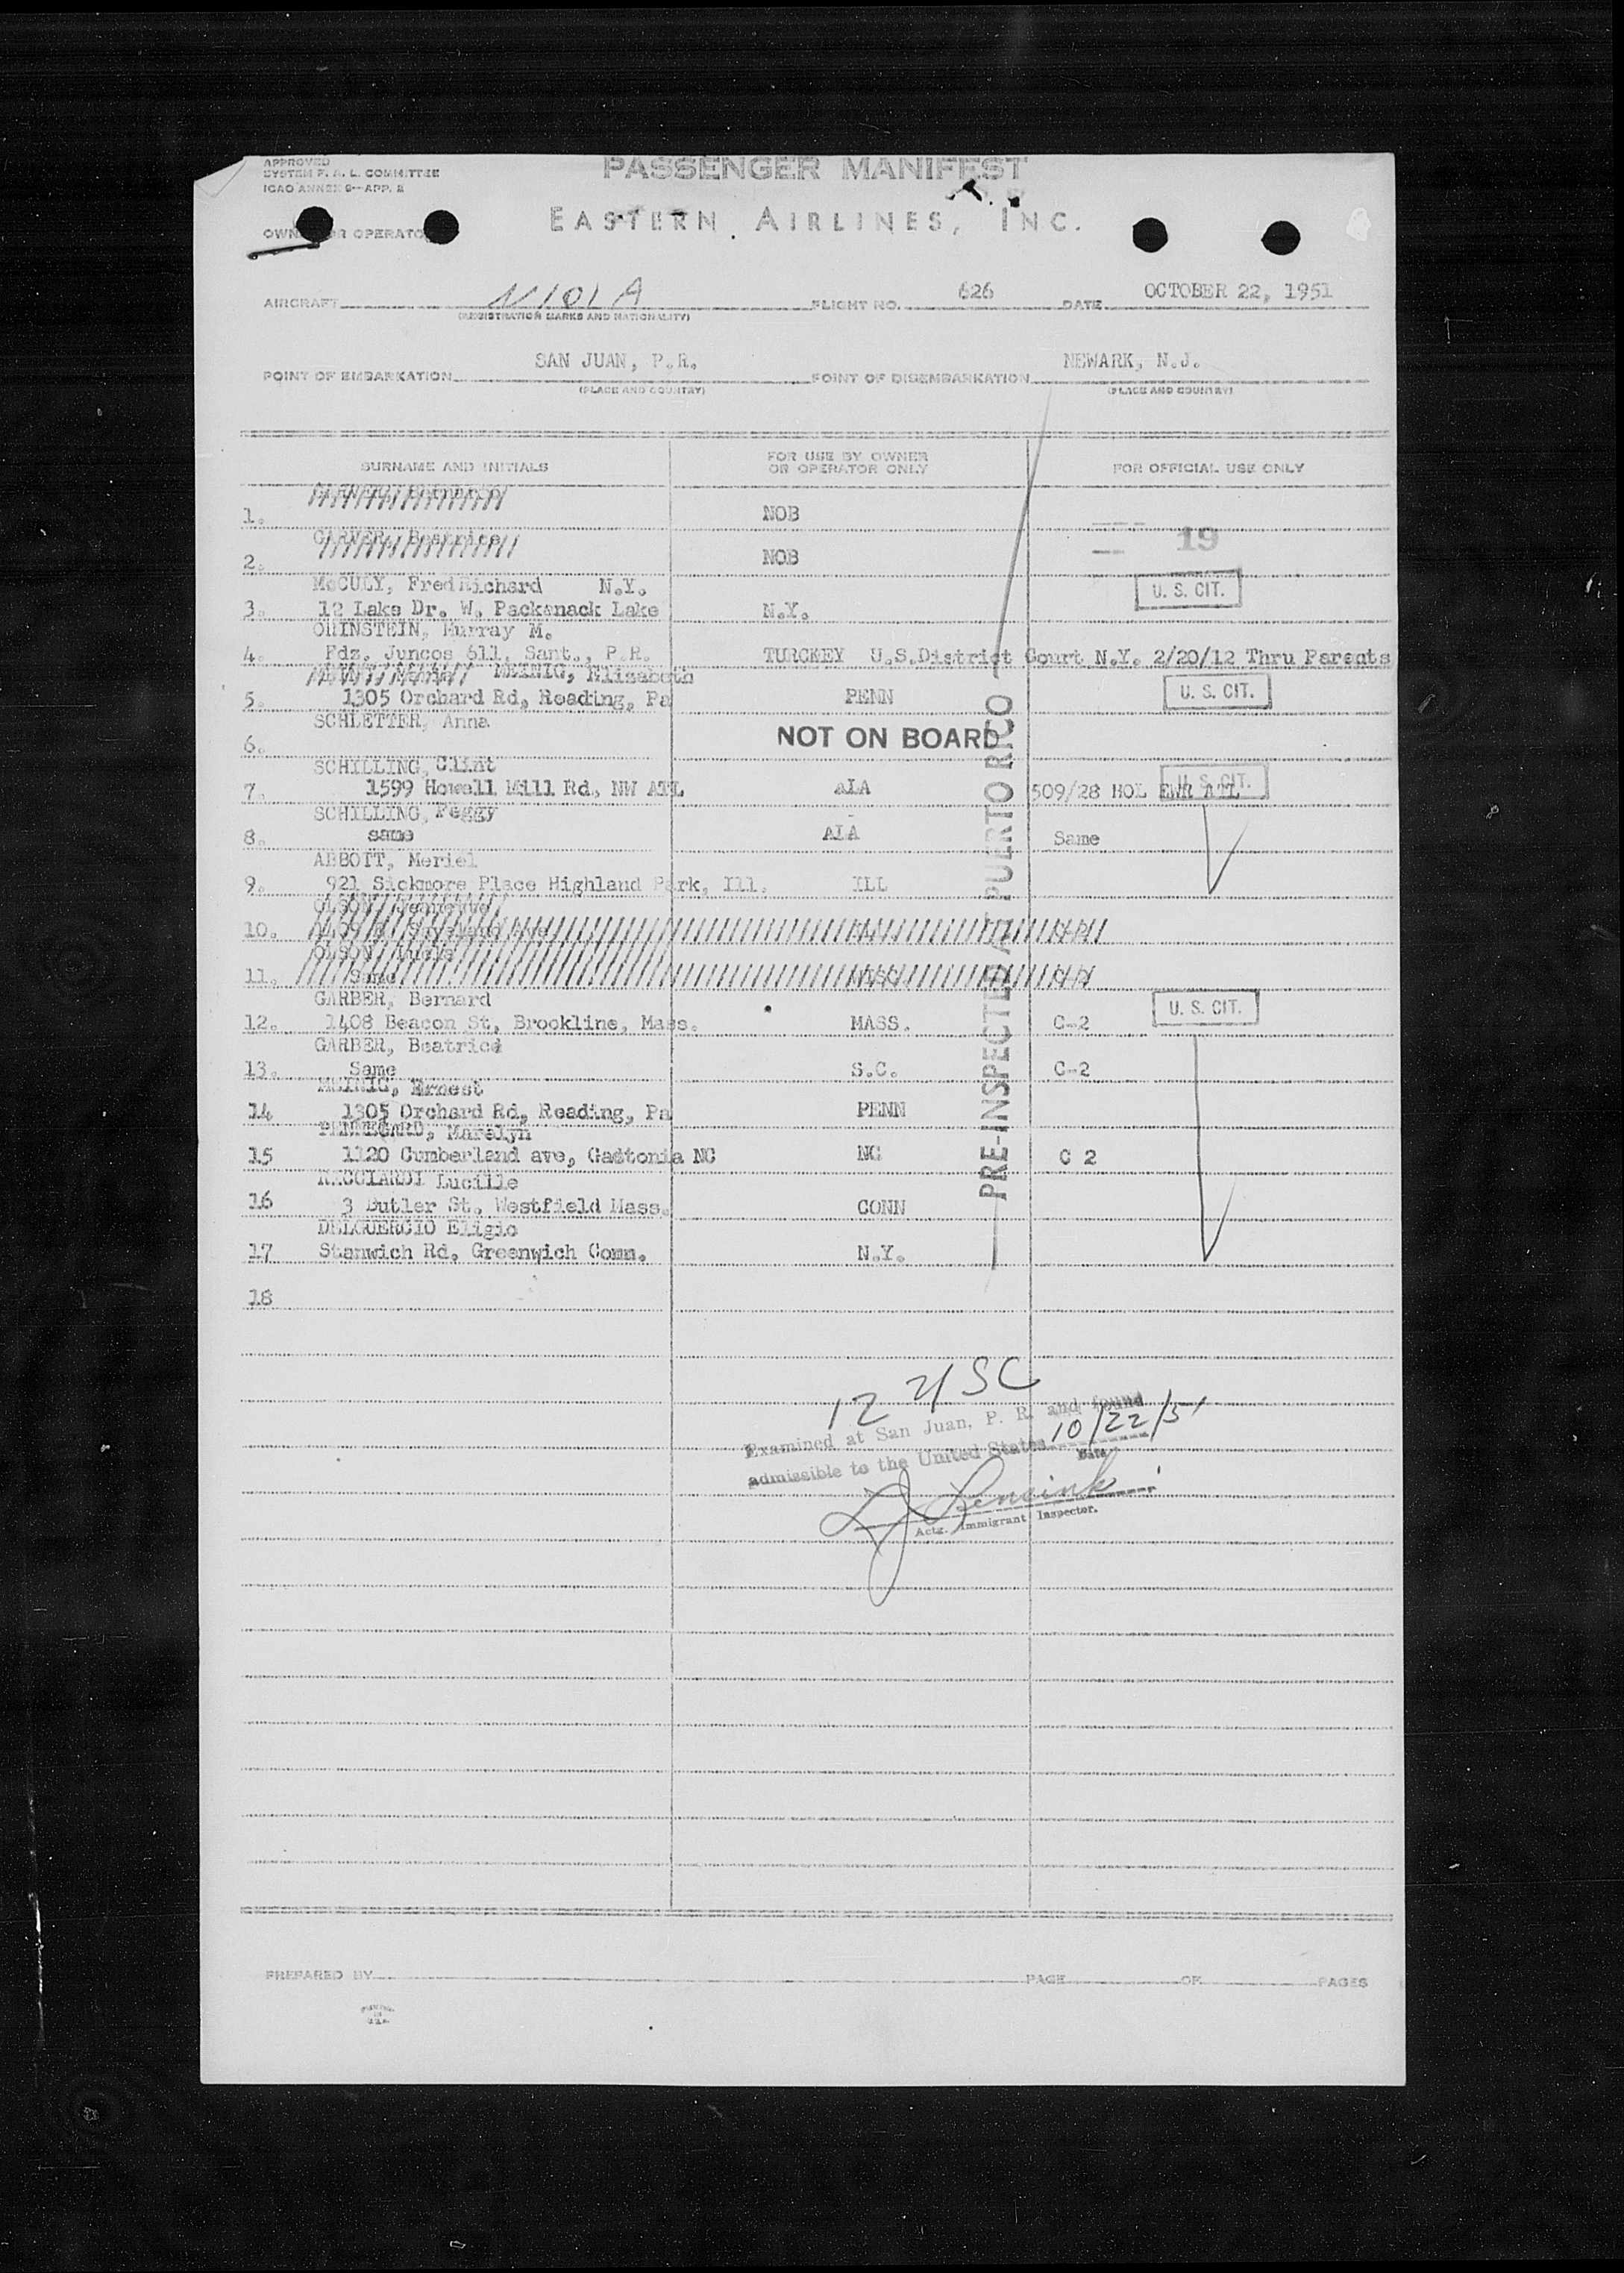 APPROVED
SYSTEM F. A. L. COMMITTEE
ICAO ANNEX 9—APP. 2
PASSENGER MANIFEST
EASTERN AIRLINES, INC.
OWNER OR OPERATOR
AIRCRAFT N101A FLIGHT NO. 626 DATE OCTOBER 22, 1951
(REGISTRATION MARKS AND NATIONALITY)
POINT OF EMBARKATION SAN JUAN, P.R. POINT OF DISEMBARKATION NEWARK, N.J.
(PLACE AND COUNTRY) (PLACE AND COUNTRY)
SURNAME AND INITIALS FOR USE BY OWNER OR OPERATOR ONLY FOR OFFICIAL USE ONLY
1. NOB
CARVER, Beatrice
2. NOB 19
McCULY, FredRichard N.Y.
3. 12 Lake Dr. W. Packanack Lake N.Y. U. S. CIT.
ORINSTEIN, Murray M.
4. Fdz. Juncos 611, Sant., P.R. TURCKEY U.S.District Court N.Y. 2/20/12 Thru Parents
MEINIG, Elizabeth
5. 1305 Orchard Rd, Reading, Pa PENN U. S. CIT.
SCHLETTER, Anna
6. NOT ON BOARD
SCHILLING, Clint
7. 1599 Howell Mill Rd, NW ATL aLA 509/28 HOL EWR ATL U. S. CIT.
SCHILLING, Peggy
8. same ALA Same
ABBOTT, Meriel
9. 921 Sickmore Place Highland Park, Ill. ILL
OLSON,
10.
OLSON,
11. Same
GARBER, Bernard
12. 1408 Beacon St, Brookline, Mass. MASS. C-2 U. S. CIT.
GARBER, Beatrice
13. Same S.C. C-2
MEINIG, Ernest
14 1305 Orchard Rd, Reading, Pa PENN
PENNEGARD, Marelyn
15 1120 Cumberland ave, Gastonia NC NC C 2
RICCIARDI Lucille
16 3 Butler St. Westfield Mass. CONN
DELGUERCIO Eligio
17 Stanwich Rd, Greenwich Conn. N.Y.
18
PRE-INSPECTED AT PUERTO RICO
12 USC
Examined at San Juan, P. R. and found
admissible to the United States 10/22/51
Date
Actg. Immigrant Inspector.
PREPARED BY PAGE OF PAGES